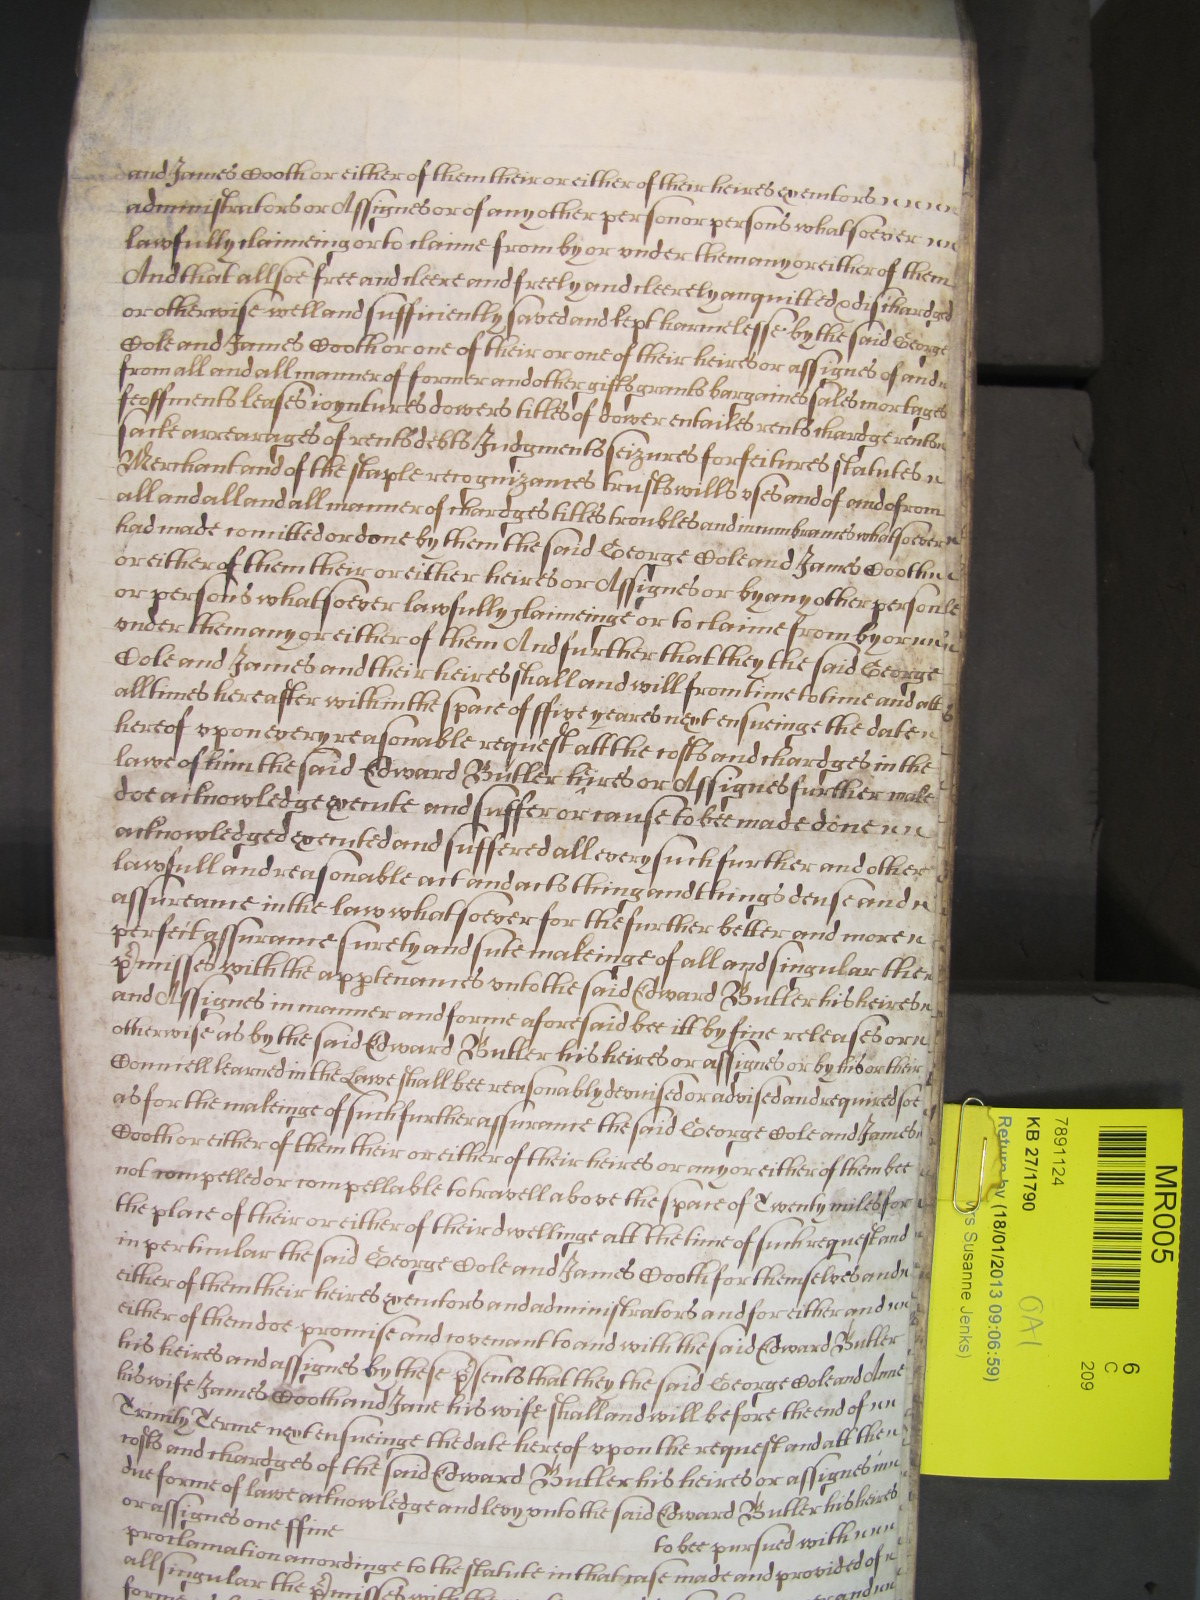 and James Cooth or either of them their or either of their heires executors
administrators or Assignes or of any other person or persons whatsoever
lawfully claimeing or to claime from by or under them any or either of them
And that all soe free and cleere and freely and cleerely acquitted & dischardged
or otherwise well and sufficiently saved and kept harmelesse by the said George
Cole and James Cooth or one of their or one of their heires or assignes of and
from all and all manner of former and other gifts grants bargaines sales mortages
feoffments leases ioyntures dowers titles of dower entailes rents chardge rents
secke arrearages of rents debts Judgments seizures forfeitures statutes
Merchant and of the staple recognizances trusts wills uses and of and from
all and all and all manner of chardges titles troubles and incumbrances whatsoever
had made comitted or done by them the said George Cole and James Cooth
or either of them their or either heires or Assignes or by any other person
or persons whatsoever lawfully claimeinge or to claime from by or
under them any or either of them And further that they the said George
Cole and James and their heires shall and will from time to time and att
all times hereafter within the space of ffive yeares next ensueinge the date
hereof upon every reasonable request att the costs and chardges in the
lawe of him the said Edward Butler heires or Assignes further make
doe acknowledge execute and suffer or cause to bee made done
acknowledged executed and suffered all every such further and other
lawfull and reasonable act and acts thing and things devise and
assureance in the law whatsoever for the further better and more
perfeit assurance surety and sure makeinge of all and singular the
p̄misses with the apptenances unto the said Edward Butler his heires
and Assignes in manner and forme aforesaid bee itt by fine releases or
otherwise as by the said Edward Butler his heires or assignes or by his or their
Councell learned in the Lawe shall bee reasonably devised or advised and required soe
as for the makeinge of such further assurance the said George Cole and James
Cooth or either of them their or either of their heires or any or either of them bee
not compelled or compellable to travell above the space of Twenty miles for
the place of their or either of their dwellinge att the time of such request and
in perticular the said George Cole and James Cooth for themselves and
either of them their heires executors and administrators and for either and
either of them doe promise and covenant to and with the said Edward Butler
his heires and assignes by these p̄sents that they the said George Cole and Anne
his wife James Cooth and Jane his wife shall and will before the end of
Trinity Terme next ensueinge the date hereof upon the request and att the
costs and chardges of the said Edward Butler his heires or assignes in
due forme of lawe acknowledge and levy unto the said Edward Butler his heires
or assignes one ffine to bee pursued with
proclamation accordinge to the statute in that case made and provided of
all singular the p̄misses with
MR005
6
C
209
7891124
KB 27/1790
Return by (18/01/2013 09:06:59)
Susanne Jenks)